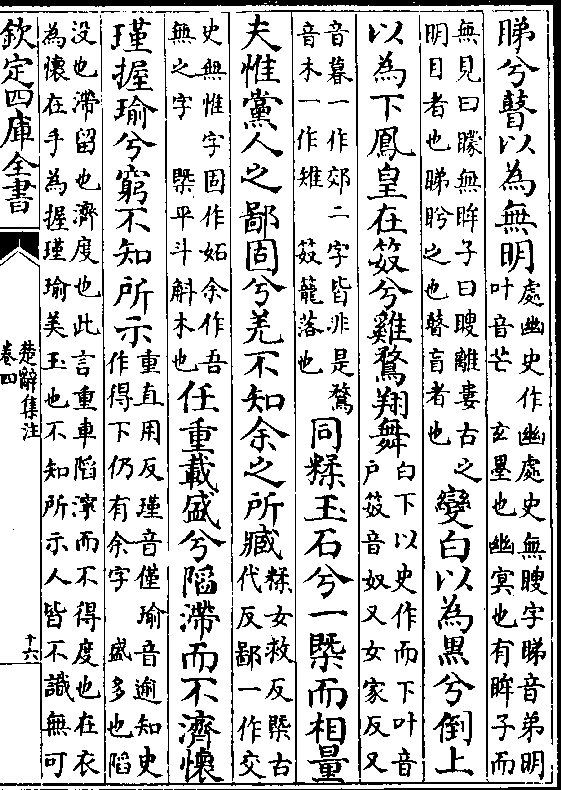 睇兮瞽以為無明處幽史作幽處史無瞍字睇音弟明
叶音芒 玄墨也幽冥也有眸子而
無見曰矇無眸子曰瞍離婁古之
明目者也睇眄之也瞽盲者也
變白以為黒兮倒上
以為下鳳皇在笯兮雞鶩翔舞白下以史作而下叶音
户笯音奴又女家反又
音暮一作郊二字皆非是鶩
音木一作雉 笯籠落也
同糅玉石兮一槩而相量
夫惟黨人之鄙固兮羌不知余之所臧糅女救反槩古
代反鄙一作交
史無惟字固作妬余作吾
無之字 槩平斗斛木也
任重載盛兮陷滯而不濟懷
瑾握瑜兮窮不知所示重直用反瑾音僅瑜音逾知史
作得下仍有余字 盛多也陷
没也滯留也濟度也此言重車陷濘而不得度也在衣
為懷在手為握瑾瑜美玉也不知所示人皆不識無可
欽定四庫全書
楚辭集注
卷四
十六